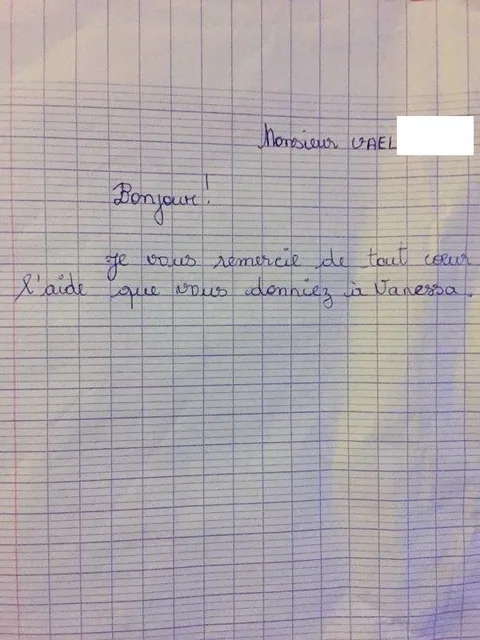 Monsieur VAEL
Bonjour!
Je vous remercie de tout cœur
l'aide que vous donniez à Vanessa.